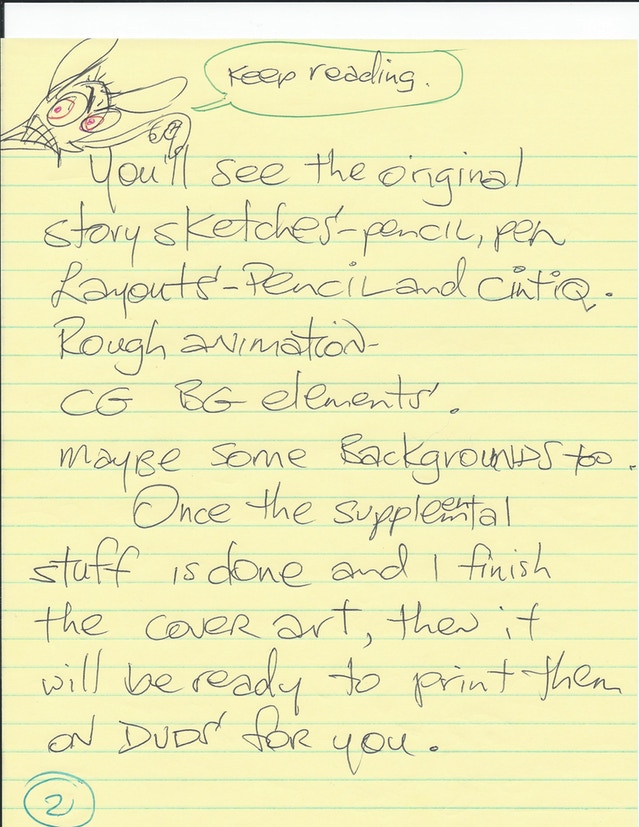 Keep reading.
You'll see the original
story sketches'-pencil, pen
Layouts'-Pencil and Cintiq.
Rough animation-
CG BG elements'.
maybe some Backgrounds too.
Once the supplemental
stuff is done and I finish
the cover art, then it
will be ready to print them
on DVDs' for you.
2